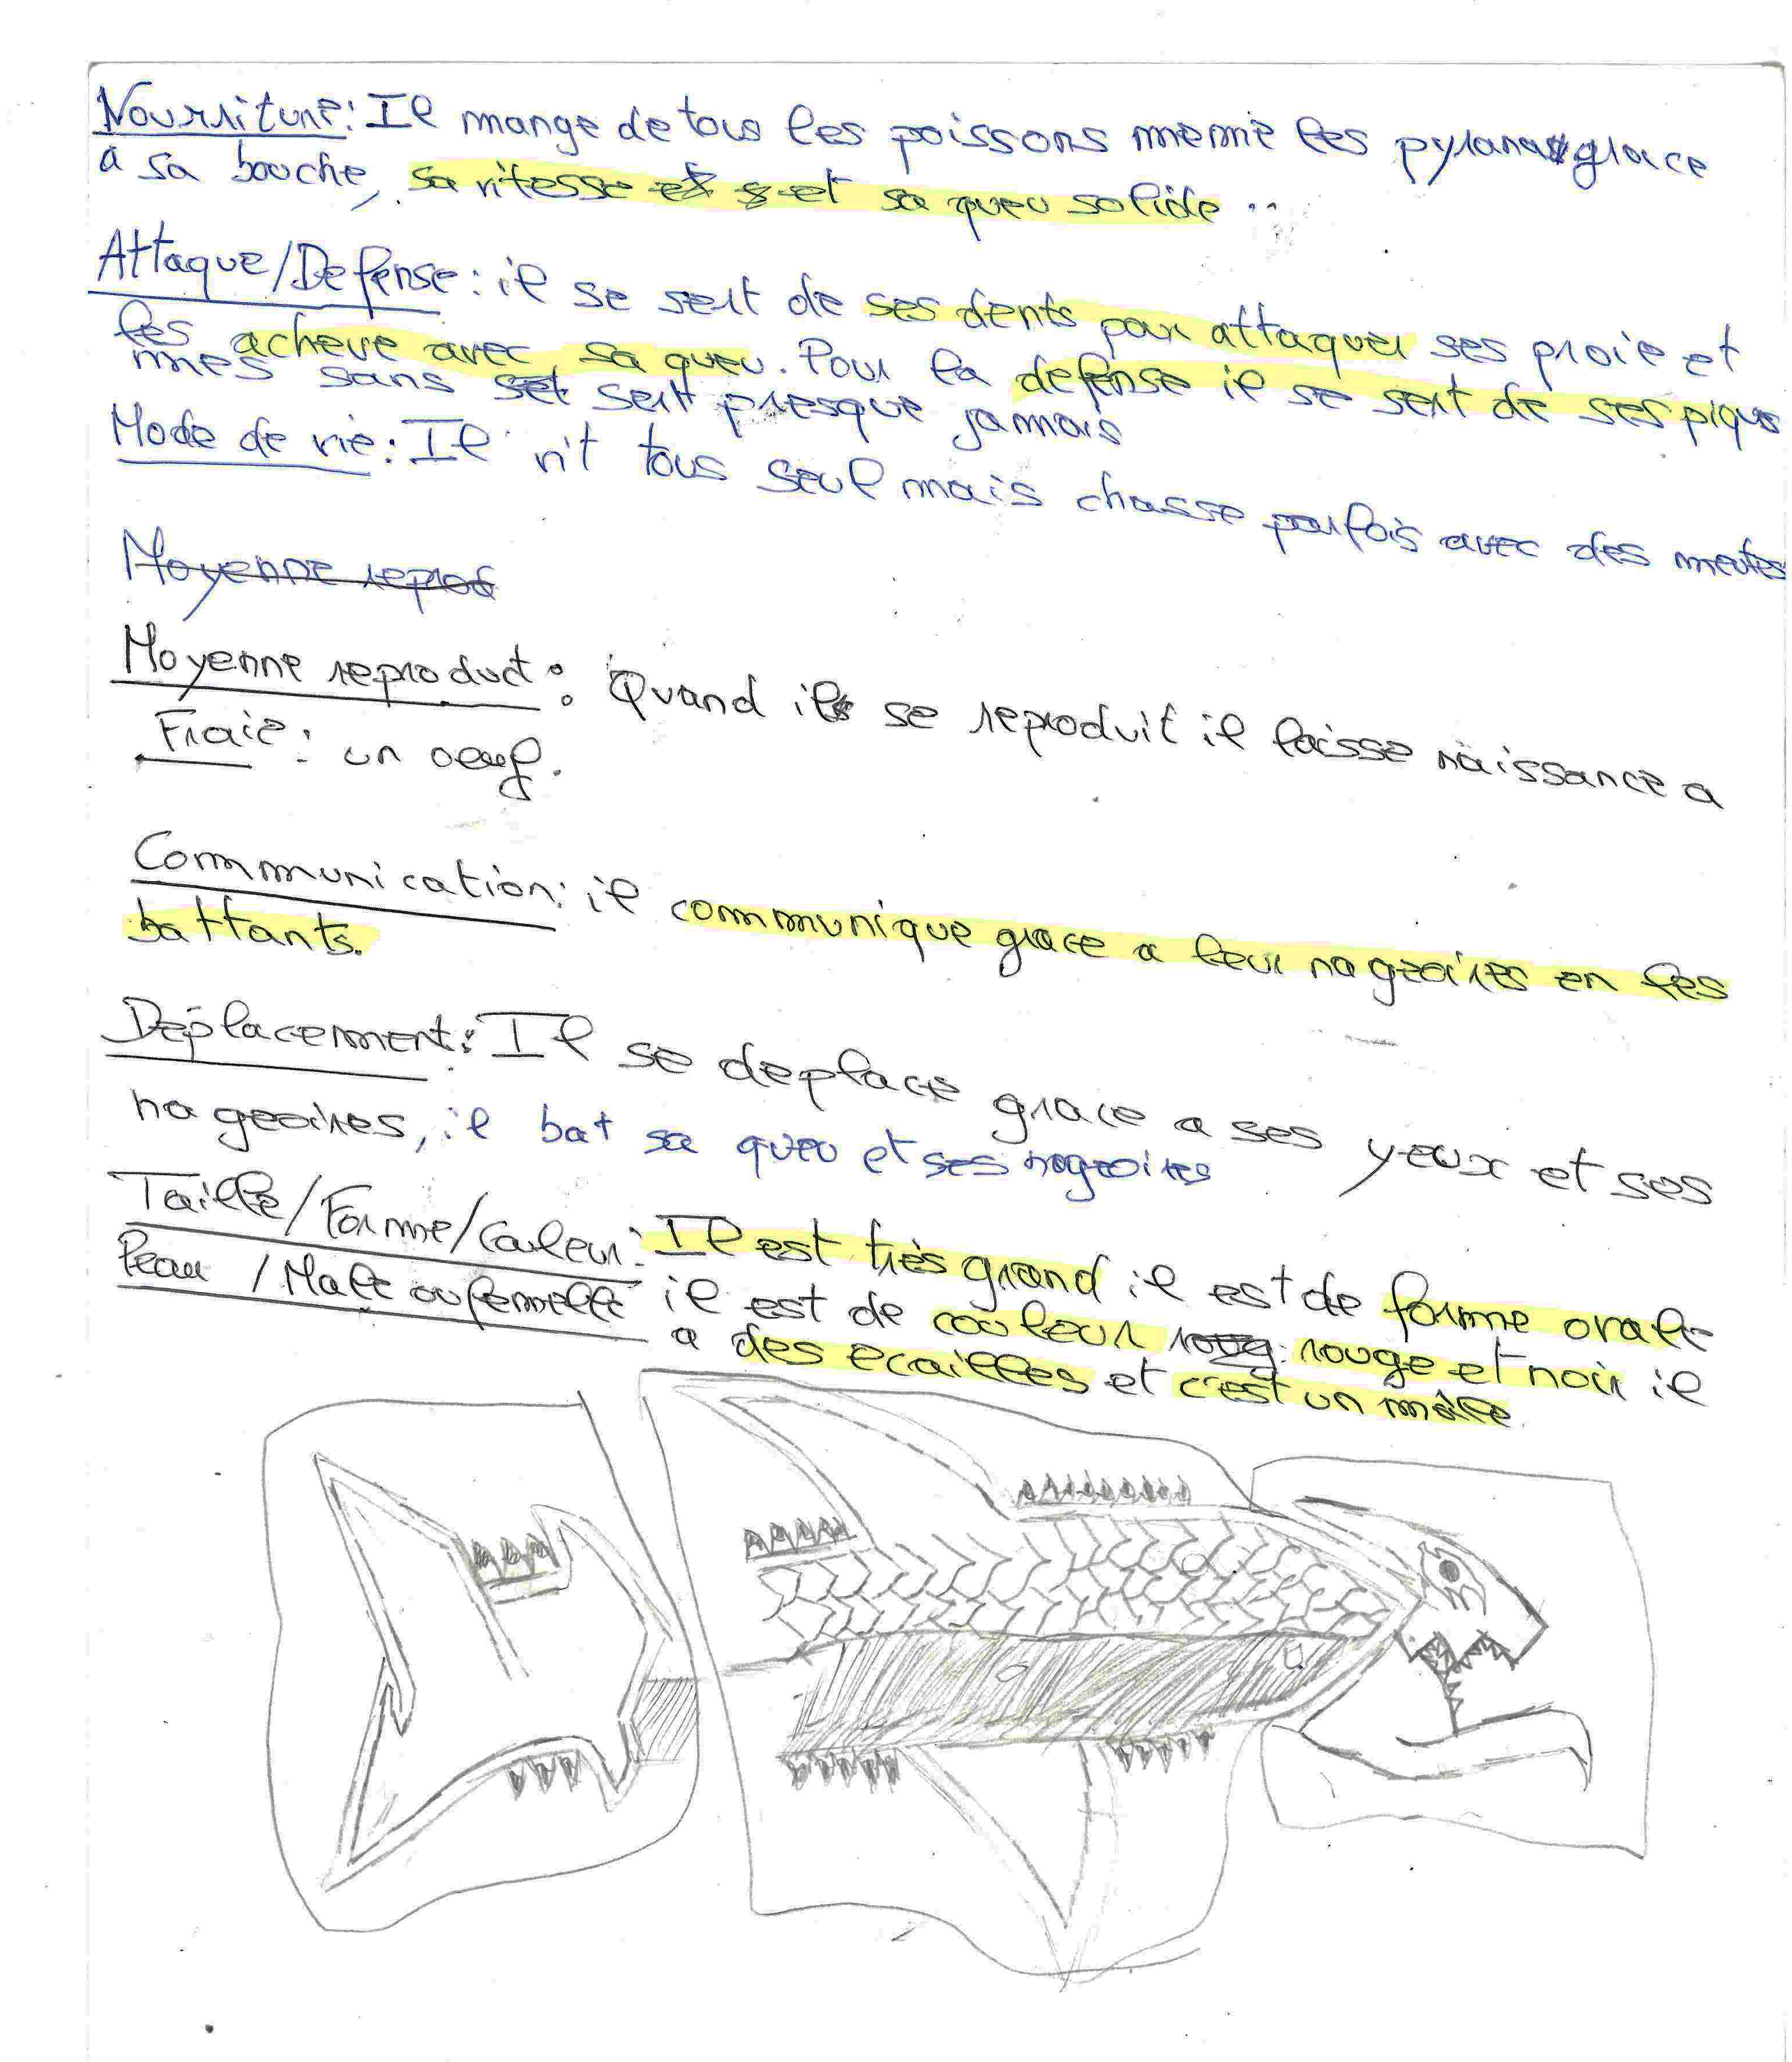 Nourriture: Il mange de tous les poissons meme les pyranas grace
a sa bouche, sa vitesse et s et sa queu solide ..
Attaque/Defense: il se sert de ses dents pour attaquer ses proie et
les acheve avec sa queu. Pour la defense il se sert de ses pique
mes sans set sert presque jamais
Mode de vie: Il vit tous seul mais chasse parfois avec des meutes
Moyenne reprod
Moyenne reproduct: Quand ils se reproduit il laisse naissance a
Fraie: un oeuf.
Communication: il communique grace a leur nageoires en les
battants.
Déplacement: Il se deplace grace a ses yeux et ses
nageoires, il bat sa queu et ses nageoires
Taille/Forme/Couleur: Il est très grand il est de forme ovale
Peau /Male ou femelle il est de couleur roug rouge et noir il
a des ecailles et c'est un mâle